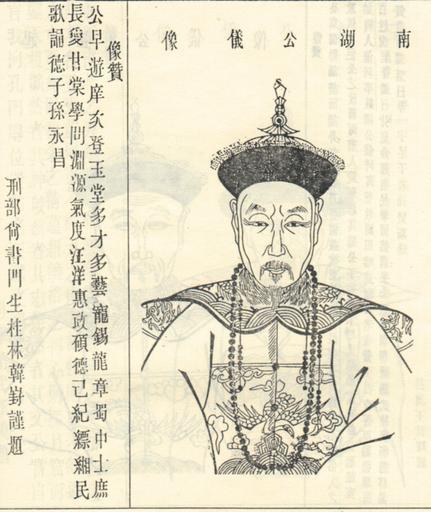 南湖公儀像
像贊
公早遊庠次登玉堂多才多藝寵錫龍章蜀中士庶
長愛甘棠學問淵源氣度汪洋惠政碩德已紀縹緗民
歌誦德子孫永昌
刑部尚書門生桂林韓崶謹題